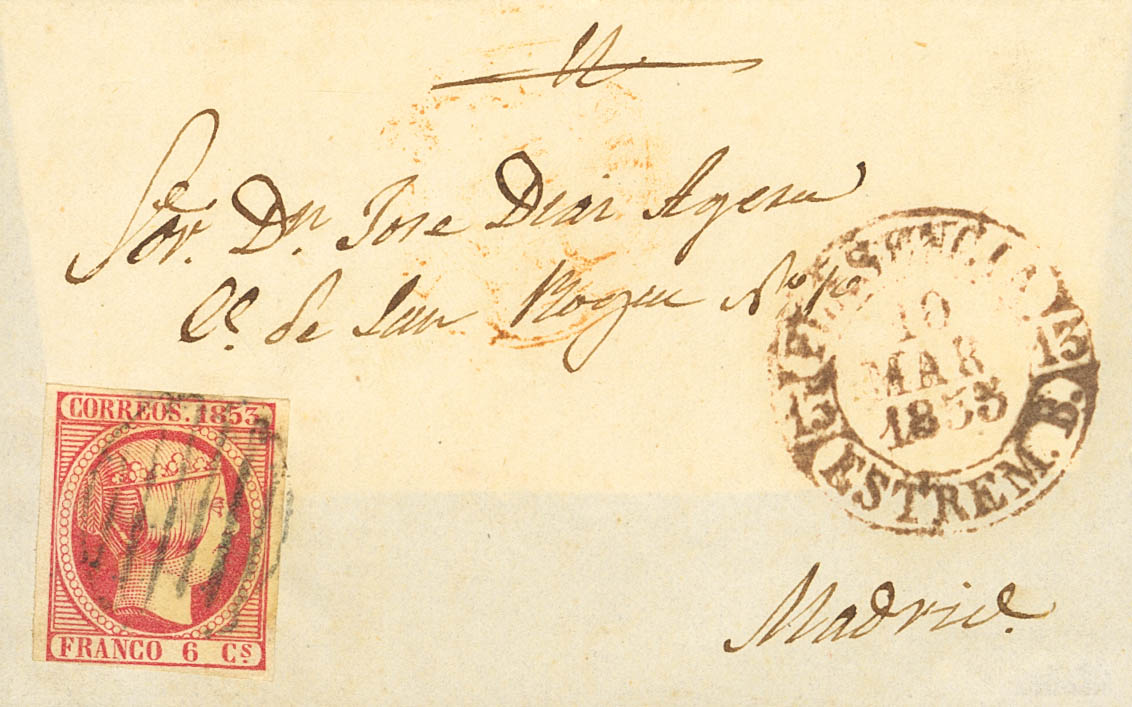 Sor. Dn. Jose Diaz Agero
Ce. de San Roque No
10
MAR
1853
13
13
ESTREM. B.
CORREOS. 1853
FRANCO 6 Cs
Madrid.